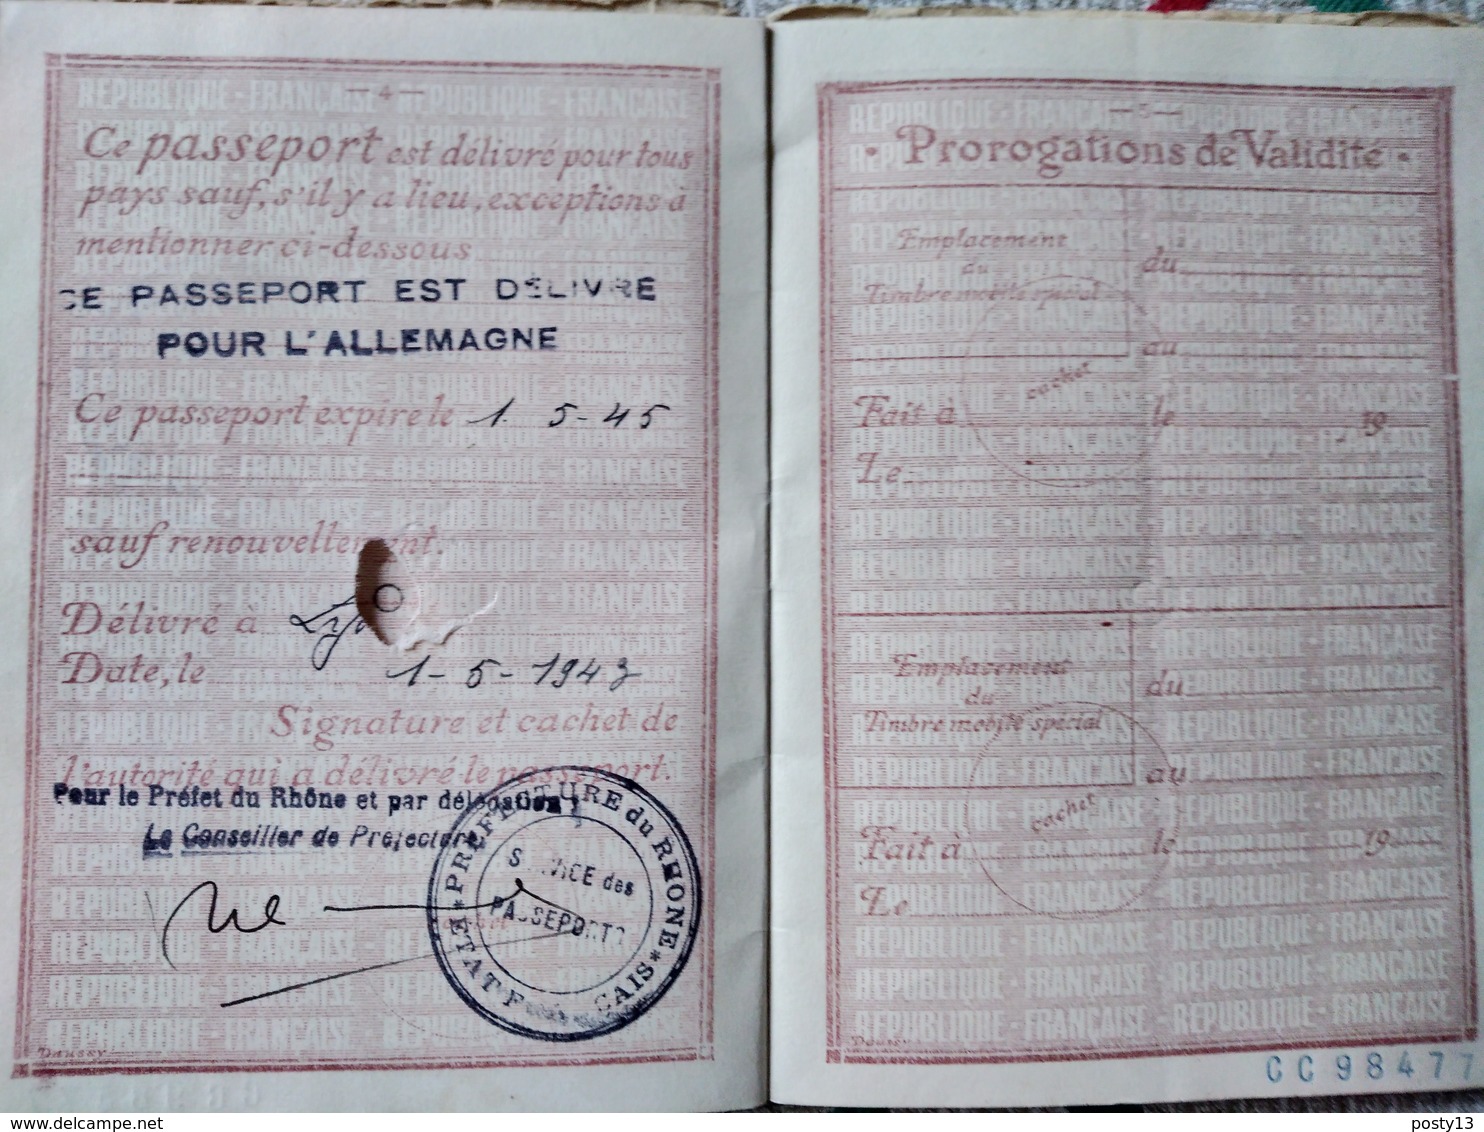 — 4 —
Ce passeport est délivré pour tous
pays sauf, s'il y a lieu, exceptions à
mentionner ci-dessous
CE PASSEPORT EST DÉLIVRÉ
POUR L'ALLEMAGNE
Ce passeport expire le 1. 5-45
sauf renouvellement.
Délivré à
Date, le 1-5-1943
Signature et cachet de
l'autorité qui a délivré le passeport.
Pour le Préfet du Rhône et par délégation
Le Conseiller de Préfecture
PREFECTURE du RHONE
SERVICE des
PASSEPORTS
* ETAT F CAIS *
Daussy
— 5 —
• Prorogations de Validité •
Emplacement
du
Timbre mobile spécial
du
au
cachet
Fait à le 19
Le
Emplacement
du
Timbre mobile spécial
du
au
cachet
Fait à le 19
Le
CC98477
REPUBLIQUE - FRANÇAISE - REPUBLIQUE - FRANÇAISE
posty13